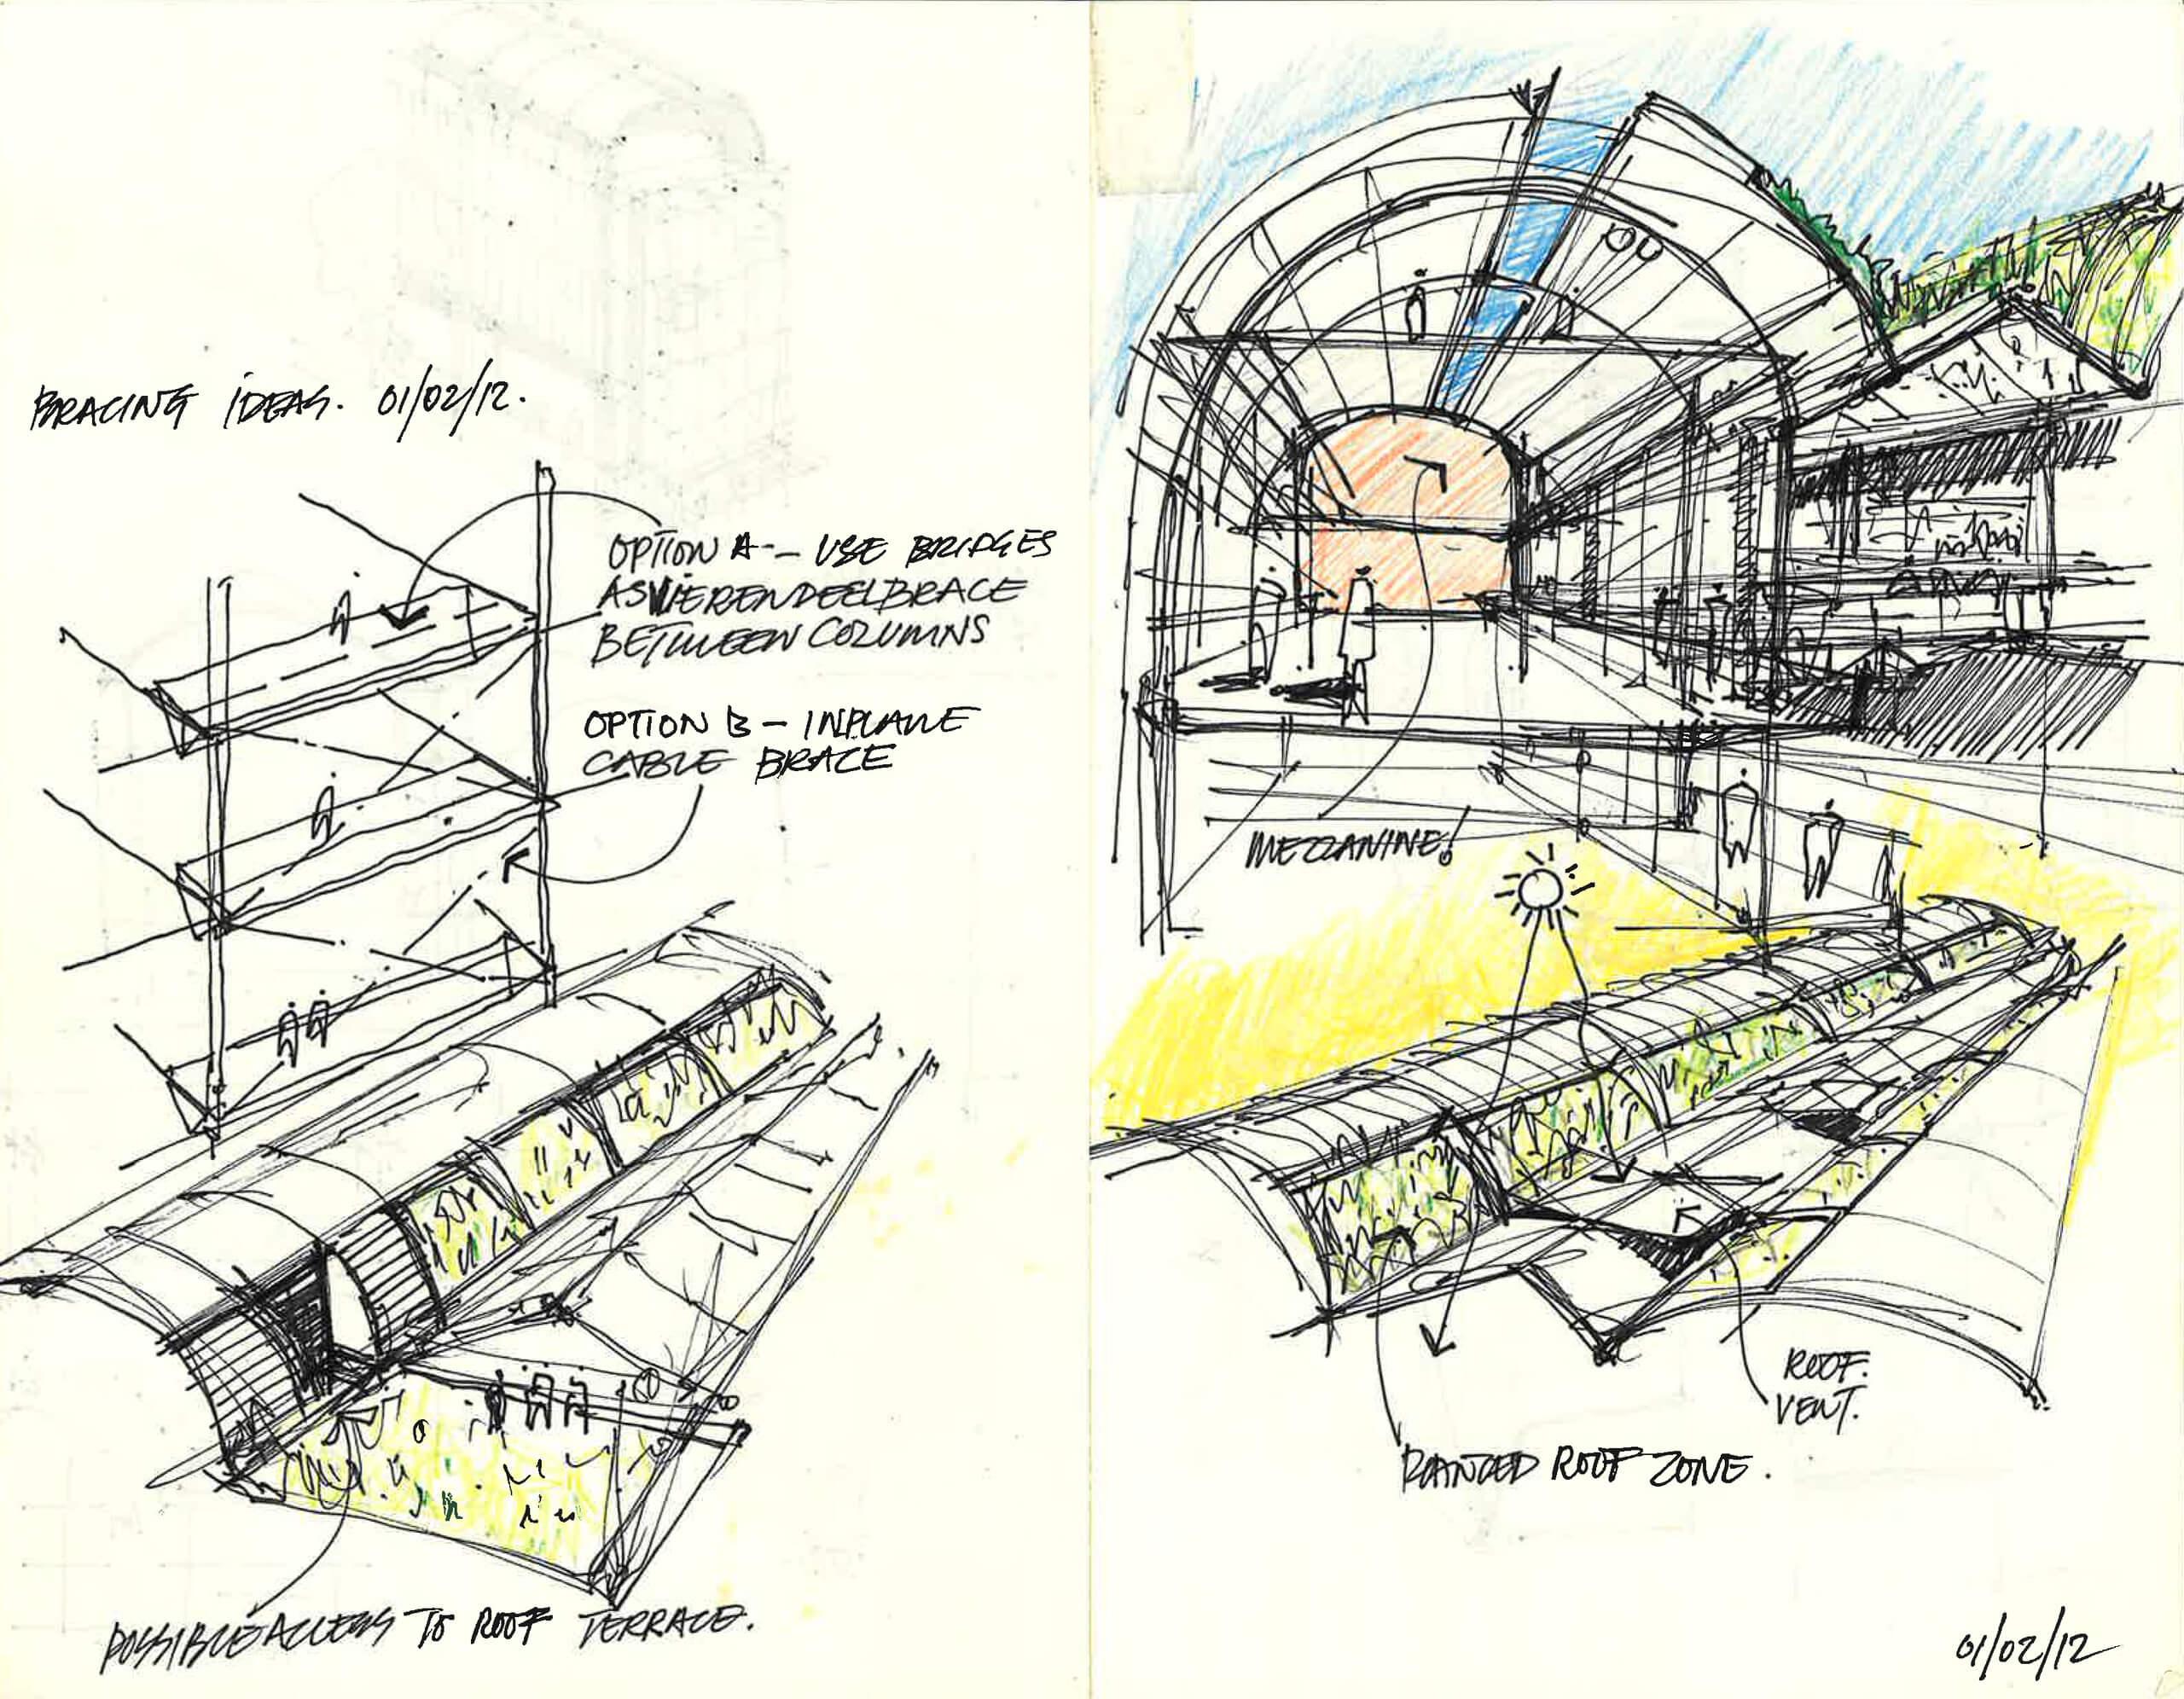 BRACING IDEAS. 01/02/12.
OPTION A - USE BRIDGES
AS VIERENDEEL BRACE
BETWEEN COLUMNS
OPTION B - INPLANE
CABLE BRACE
POSSIBLE ACCESS TO ROOF TERRACE.
MEZZANINE!
ROOF.
VENT.
PLANTED ROOF ZONE.
01/02/12